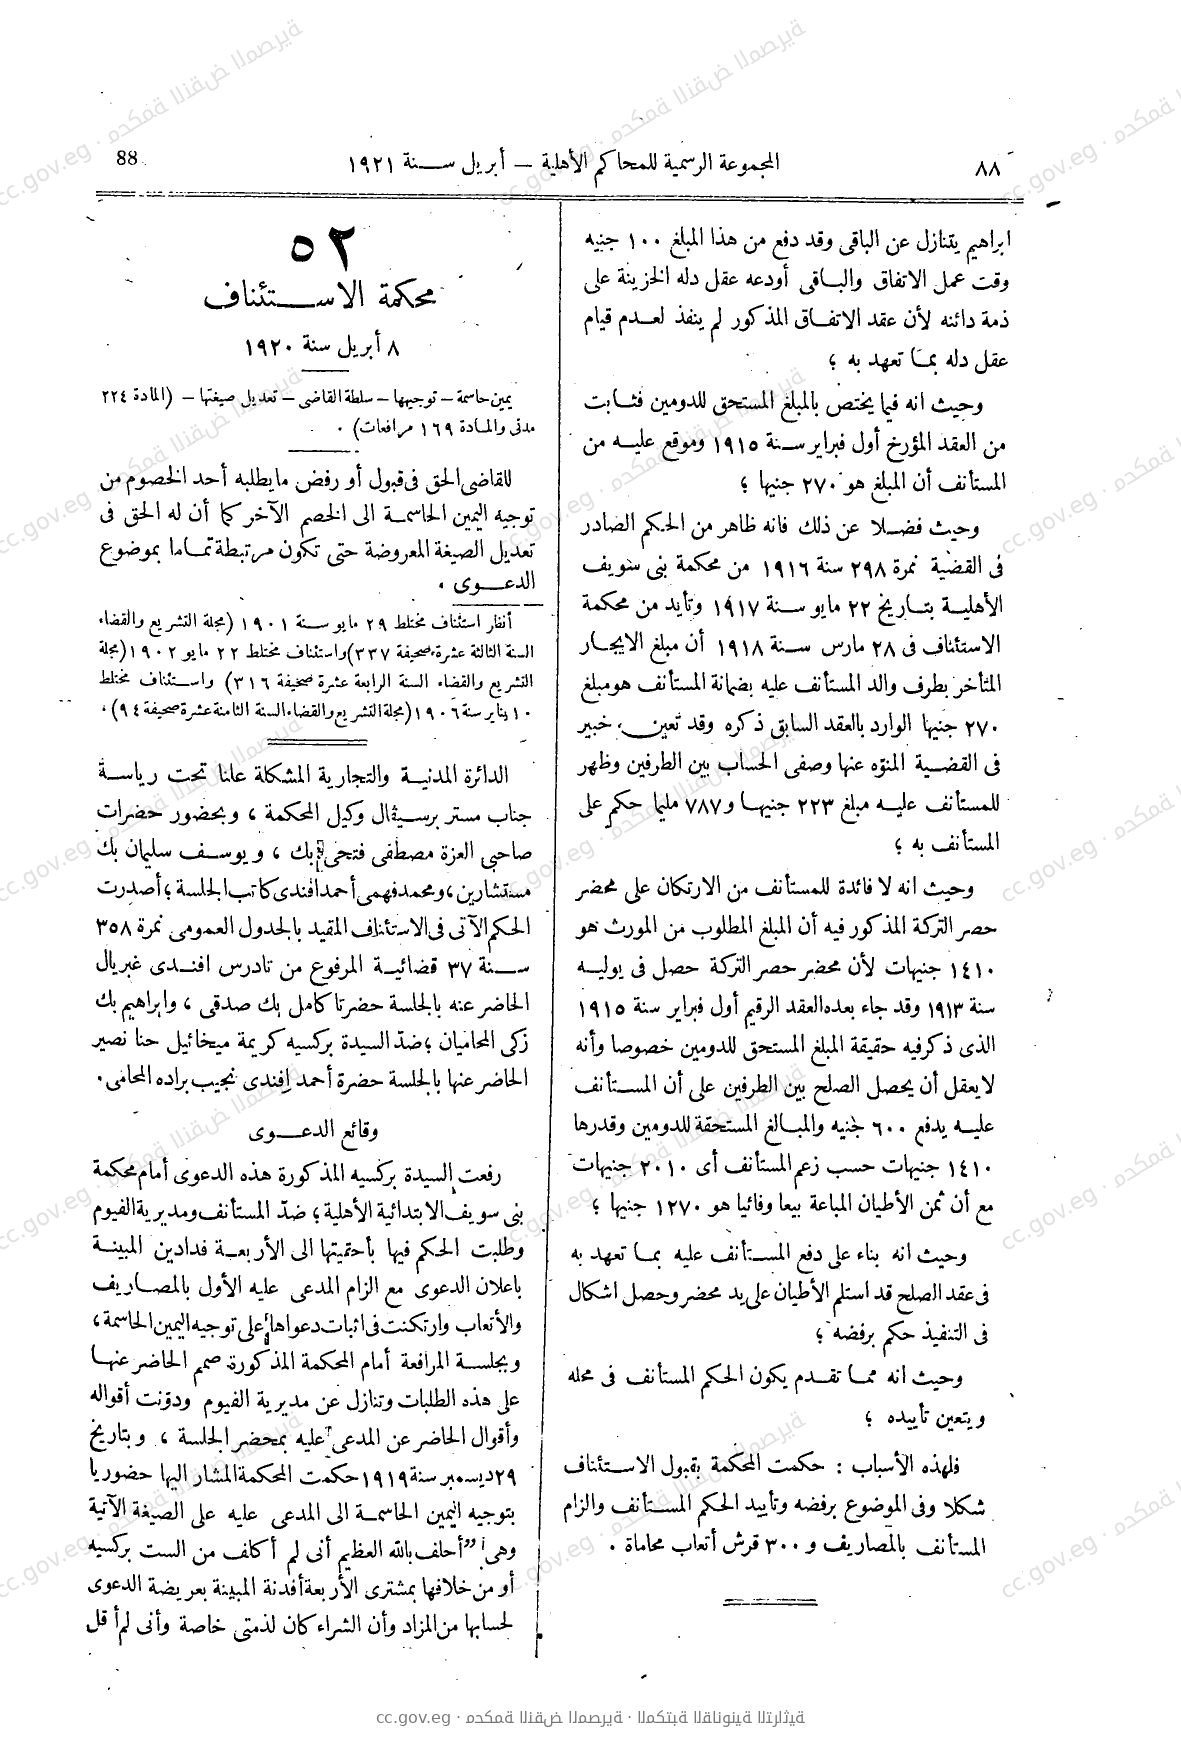 ٨٨
المجموعة الرسمية للمحاكم الأهلية – أبريل سنة ١٩٢١
88
ابراهيم يتنازل عن الباقى وقد دفع من هذا المبلغ ١٠٠ جنيه
وقت عمل الاتفاق والباقى أودعه عقل دله الخزينة على
ذمة دائنه لأن عقد الاتفاق المذكور لم ينفذ لعدم قيام
عقل دله بما تعهد به ؛
وحيث انه فيما يختص بالمبلغ المستحق للدومين فثابت
من العقد المؤرخ أول فبراير سنة ١٩١٥ وموقع عليه من
المستأنف أن المبلغ هو ٢٧٠ جنيها ؛
وحيث فضلا عن ذلك فانه ظاهر من الحكم الصادر
فى القضية نمرة ٢٩٨ سنة ١٩١٦ من محكمة بنى سويف
الأهلية بتاريخ ٢٢ مايو سنة ١٩١٧ وتأيد من محكمة
الاستئناف فى ٢٨ مارس سنة ١٩١٨ أن مبلغ الايجار
المتأخر بطرف والد المستأنف عليه بضمانة المستأنف هو مبلغ
٢٧٠ جنيها الوارد بالعقد السابق ذكره وقد تعين خبير
فى القضية المنوّه عنها وصفى الحساب بين الطرفين وظهر
للمستأنف عليه مبلغ ٢٢٣ جنيها و ٧٨٧ مليما حكم على
المستأنف به ؛
وحيث انه لا فائدة للمستأنف من الارتكان على محضر
حصر التركة المذكور فيه أن المبلغ المطلوب من المورث هو
١٤١٠ جنيهات لأن محضر حصر التركة حصل فى يوليه
سنة ١٩١٣ وقد جاء بعده العقد الرقيم أول فبراير سنة ١٩١٥
الذى ذكر فيه حقيقة المبلغ المستحق للدومين خصوصا وأنه
لا يعقل أن يحصل الصلح بين الطرفين على أن المستأنف
عليه يدفع ٦٠٠ جنيه والمبالغ المستحقة للدومين وقدرها
١٤١٠ جنيهات حسب زعم المستأنف أى ٢٠١٠ جنيهات
مع أن ثمن الأطيان المباعة بيعا وفائيا هو ١٢٧٠ جنيها ؛
وحيث انه بناء على دفع المستأنف عليه بما تعهد به
فى عقد الصلح قد استلم الأطيان على يد محضر وحصل اشكال
فى التنفيذ حكم برفضه ؛
وحيث انه مما تقدم يكون الحكم المستأنف فى محله
ويتعين تأييده ؛
فلهذه الأسباب : حكمت المحكمة بقبول الاستئناف
شكلا وفى الموضوع برفضه وتأييد الحكم المستأنف والزام
المستأنف بالمصاريف و ٣٠٠ قرش أتعاب محاماة .
٥٢
محكمة الاستئناف
٨ أبريل سنة ١٩٢٠
يمين حاسمة – توجيهها – سلطة القاضى – تعديل صيغتها – (المادة ٢٢٤
مدنى والمادة ١٦٩ مرافعات) .
للقاضى الحق فى قبول أو رفض ما يطلبه أحد الخصوم من
توجيه اليمين الحاسمة الى الخصم الآخر كما أن له الحق فى
تعديل الصيغة المعروضة حتى تكون مرتبطة تماما بموضوع
الدعوى .
أنظر استئناف مختلط ٢٩ مايو سنة ١٩٠١ (مجلة التشريع والقضاء
السنة الثالثة عشرة صحيفة ٣٣٧) واستئناف مختلط ٢٢ مايو ١٩٠٢ (مجلة
التشريع والقضاء السنة الرابعة عشرة صحيفة ٣١٦) واستئناف مختلط
١٠ يناير سنة ١٩٠٦ (مجلة التشريع والقضاء السنة الثامنة عشرة صحيفة ٩٤) .
الدائرة المدنية والتجارية المشكلة علنا تحت رياسة
جناب مستر برسيڤال وكيل المحكمة ، وبحضور حضرات
صاحبى العزة مصطفى فتحى بك ، ويوسف سليمان بك
مستشارين ، ومحمد فهمى أحمد افندى كاتب الجلسة ؛ أصدرت
الحكم الآتى فى الاستئناف المقيد بالجدول العمومى نمرة ٣٥٨
سنة ٣٧ قضائية المرفوع من تادرس افندى غبريال
الحاضر عنه بالجلسة حضرتا كامل بك صدقى ، وابراهيم بك
زكى المحاميان ؛ ضدّ السيدة بركسيه كريمة ميخائيل حنا نصير
الحاضر عنها بالجلسة حضرة أحمد افندى نجيب براده المحامى .
وقائع الدعوى
رفعت السيدة بركسيه المذكورة هذه الدعوى أمام محكمة
بنى سويف الابتدائية الأهلية ؛ ضدّ المستأنف ومديرية الفيوم
وطلبت الحكم فيها بأحقيتها الى الأربعة فدادين المبينة
باعلان الدعوى مع الزام المدعى عليه الأول بالمصاريف
والأتعاب وارتكنت فى اثبات دعواها على توجيه اليمين الحاسمة ،
وبجلسة المرافعة أمام المحكمة المذكورة صمم الحاضر عنها
على هذه الطلبات وتنازل عن مديرية الفيوم ودوّنت أقواله
وأقوال الحاضر عن المدعى عليه بمحضر الجلسة ، وبتاريخ
٢٩ ديسمبر سنة ١٩١٩ حكمت المحكمة المشار اليها حضوريا
بتوجيه اليمين الحاسمة الى المدعى عليه على الصيغة الآتية
وهى "أحلف بالله العظيم أنى لم أكلف من الست بركسيه
أو من خلافها بمشترى الأربعة أفدنة المبينة بعريضة الدعوى
لحسابها من المزاد وأن الشراء كان لذمتى خاصة وأنى لم أقل
cc.gov.eg · محكمة النقض المصرية · المكتبة القانونية التراثية